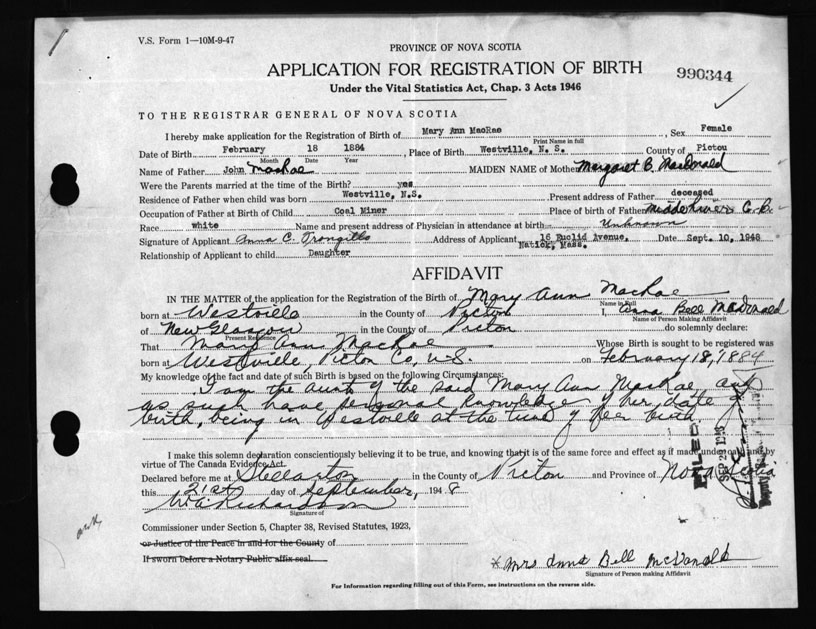 V.S. Form 1—10M-9-47
PROVINCE OF NOVA SCOTIA
APPLICATION FOR REGISTRATION OF BIRTH
990344
Under the Vital Statistics Act, Chap. 3 Acts 1946
TO THE REGISTRAR GENERAL OF NOVA SCOTIA
I hereby make application for the Registration of Birth of Mary Ann MacRae, Sex Female
Print Name in full
Date of Birth February 18 1884, Place of Birth Westville, N. S. County of Pictou
Month Date Year
Name of Father John MacRae MAIDEN NAME of Mother Margaret B. MacDonald
Were the Parents married at the time of Birth? yes
Residence of Father when child was born Westville, N.S. Present address of Father deceased
Occupation of Father at Birth of Child Coal Miner Place of birth of Father Middle River C.B.
Race white Name and present address of Physician in attendance at birth Unknown
Signature of Applicant Anna C. Address of Applicant 16 Euclid Avenue, Date Sept. 10, 1948
Natick, Mass.
Relationship of Applicant to child Daughter
AFFIDAVIT
IN THE MATTER of the application for the Registration of the Birth of Mary Ann MacRae
Name in Full
born at Westville in the County of Pictou I, Anna Bell McDonald
Name of Person Making Affidavit
of New Glasgow in the County of Pictou do solemnly declare:
Present Residence
That Mary Ann MacRae Whose Birth is sought to be registered was
born at Westville, Pictou Co, N.S. on February 18, 1884
My knowledge of the fact and date of such Birth is based on the following Circumstances:
I am the aunt of the said Mary Ann MacRae, and
as such have personal knowledge of her date of
birth, being in Westville at the time of her birth.
I make this solemn declaration conscientiously believing it to be true, and knowing that it is of the same force and effect as if made under oath and by
virtue of The Canada Evidence Act.
Declared before me at Stellarton in the County of Pictou and Province of Nova Scotia
this 21st day of September, 1948
W.C. Richardson
Signature of
FILED
Commissioner under Section 5, Chapter 38, Revised Statutes, 1923,
or Justice of the Peace in and for the County of
If sworn before a Notary Public affix seal.
x Mrs Anna Bell McDonald
Signature of Person making Affidavit
For Information regarding filling out of this Form, see instructions on the reverse side.